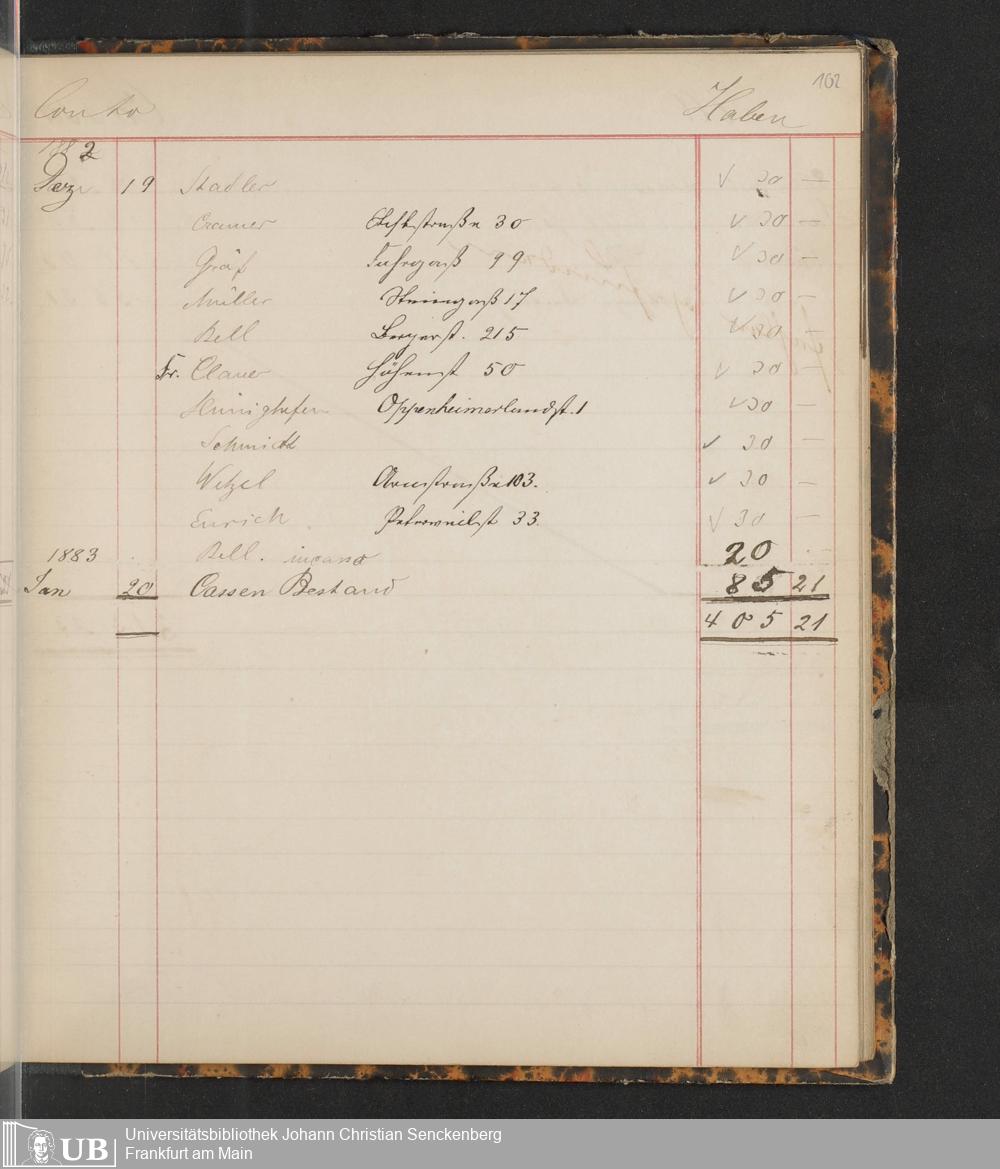 102
Conto Haben
1882
Dez 19 Stadler √ 30 —
Cramer 30 √ 30 —
Gräf Fahrgaß 99 √ 30 —
Müller Steingaß 17 √ 30 —
Bell Bergerst. 215 √ 30 —
Fr. Clauer Höhenst 50 √ 30 —
Hünighofen Oppenheimerlandst. 1 √ 30 —
Schmidt √ 30 —
Wetzel 103. √ 30 —
Emrich Peterweilst 33. √ 30 —
1883 Bell. 20 —
Jan 20 Cassen Bestand 85 21
405 21
UB
Universitätsbibliothek Johann Christian Senckenberg
Frankfurt am Main